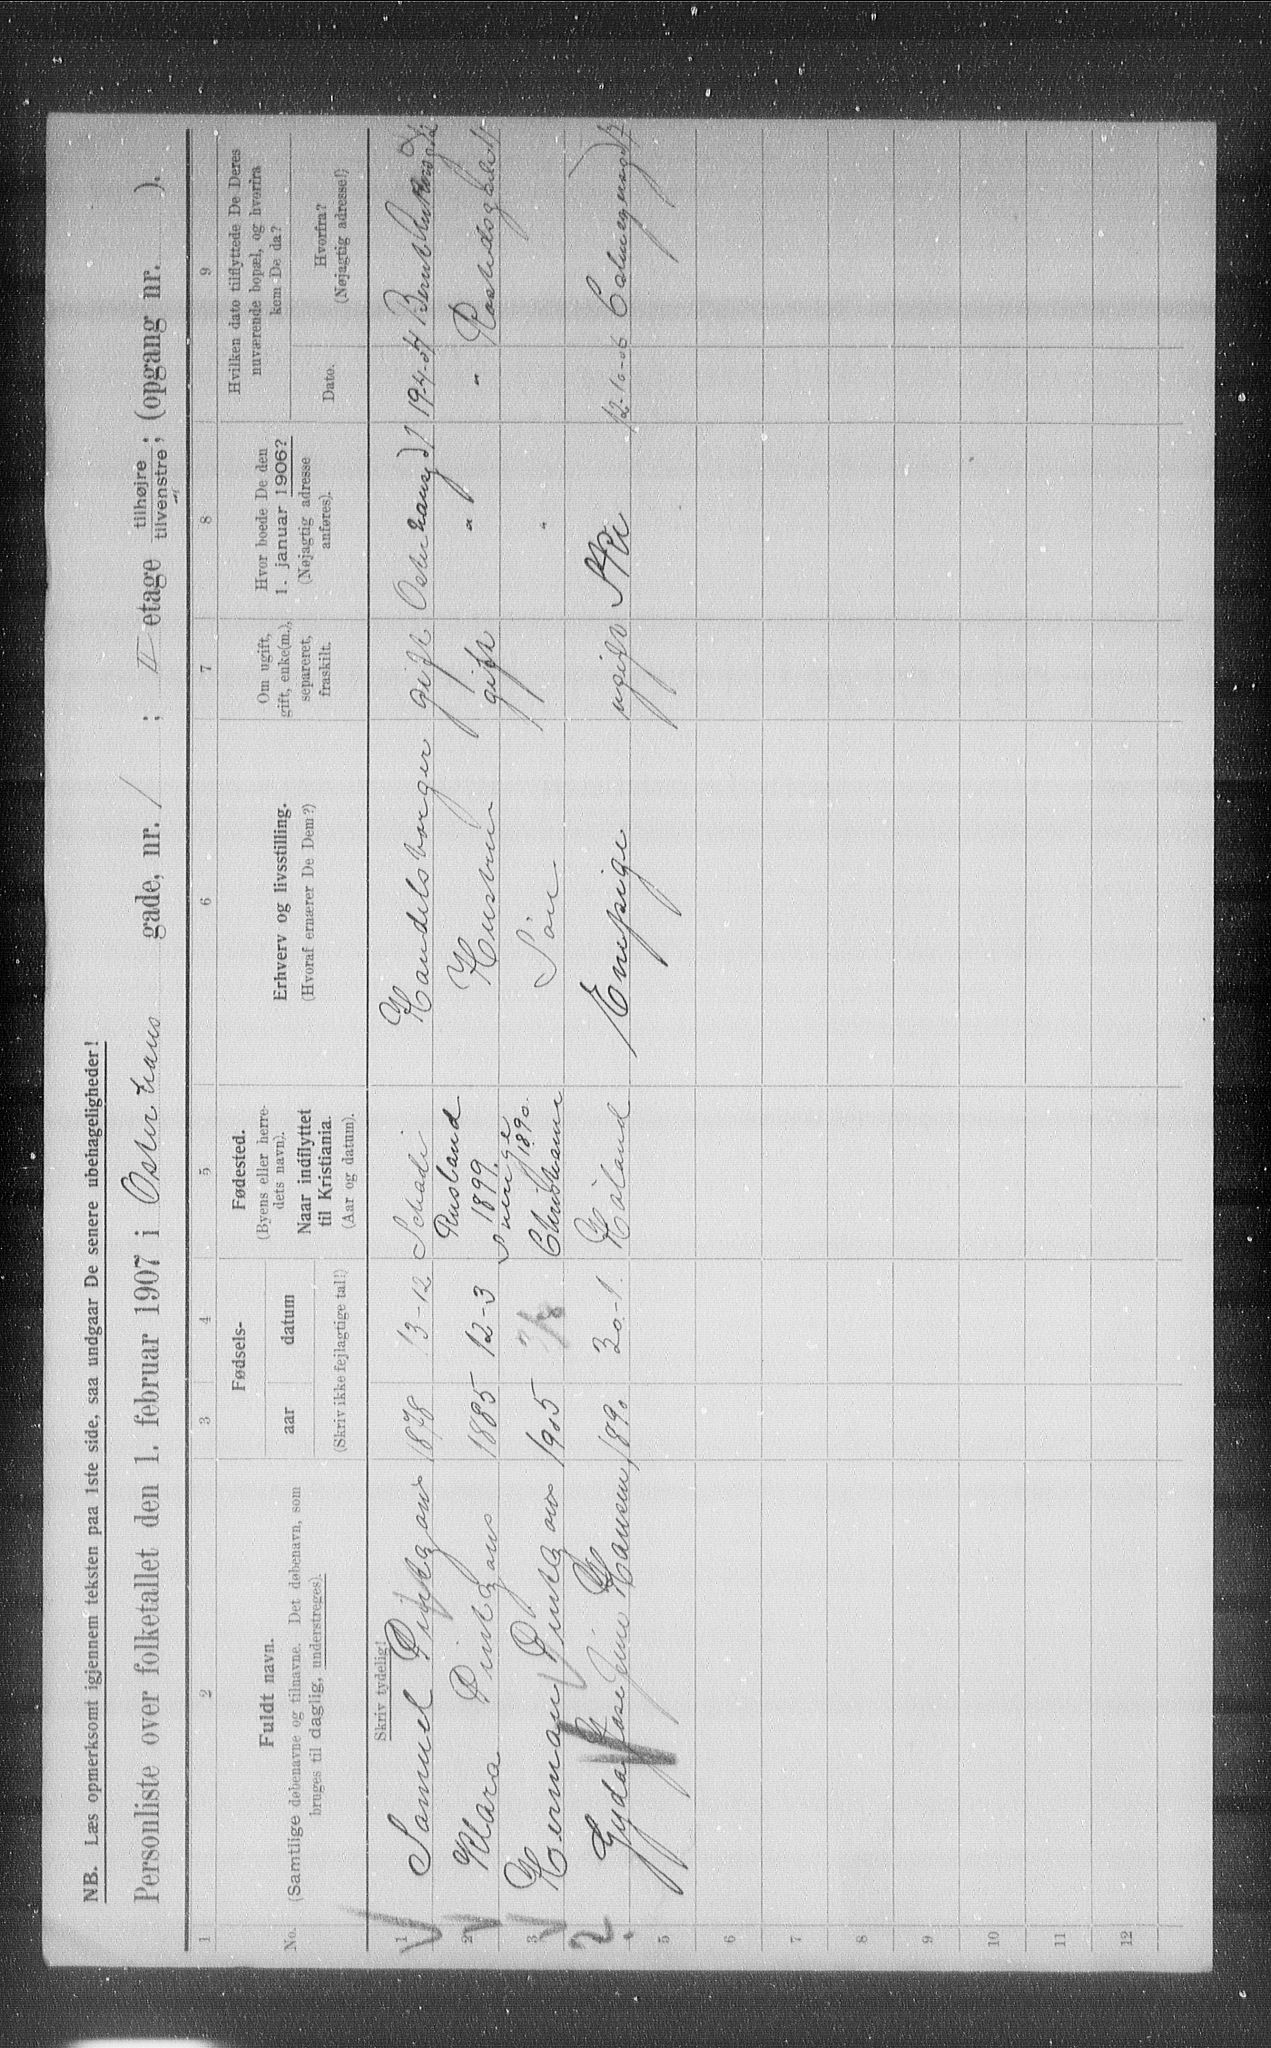 NB. Læs opmerksomt igjennem teksten paa 1ste side, saa undgaar De senere ubehageligheder!
Personliste over folketallet den 1. februar 1907 i Osterhaus gade, nr. 1 ; II etage tilhøjre / tilvenstre ; (opgang nr. ).
1 2 3 4 5 6 7 8 9
No.
Fuldt navn.
(Samtlige døbenavne og tilnavne. Det døbenavn, som
bruges til daglig, understreges).
Fødsels-
aar datum
(Skriv ikke fejlagtige tal!)
Fødested.
(Byens eller herre-
dets navn).
Naar indflyttet
til Kristiania.
(Aar og datum).
Erhverv og livsstilling.
(Hvoraf ernærer De Dem?)
Om ugift,
gift, enke(m.),
separeret,
fraskilt.
Hvor boede De den
1. januar 1906?
(Nøjagtig adresse
anføres).
Hvilken dato tilflyttede De Deres
nuværende bopæl, og hvorfra
kom De da?
Dato.
Hvorfra?
(Nøjagtig adresse!)
Skriv tydelig!
1 Samuel 1878 13-12 Schadi Rusland 1899. Handelsborger gift Osterhausgd 1 19-4-04
2 Klara 1885 12-3 Sverige 1890. Hustru gift " "
3 Herman 1905 Christiania Søn "
2. Gyda Josefine Hansen 1890 30-1. Høland Enepige ugift 12-10-06
5
6
7
8
9
10
11
12